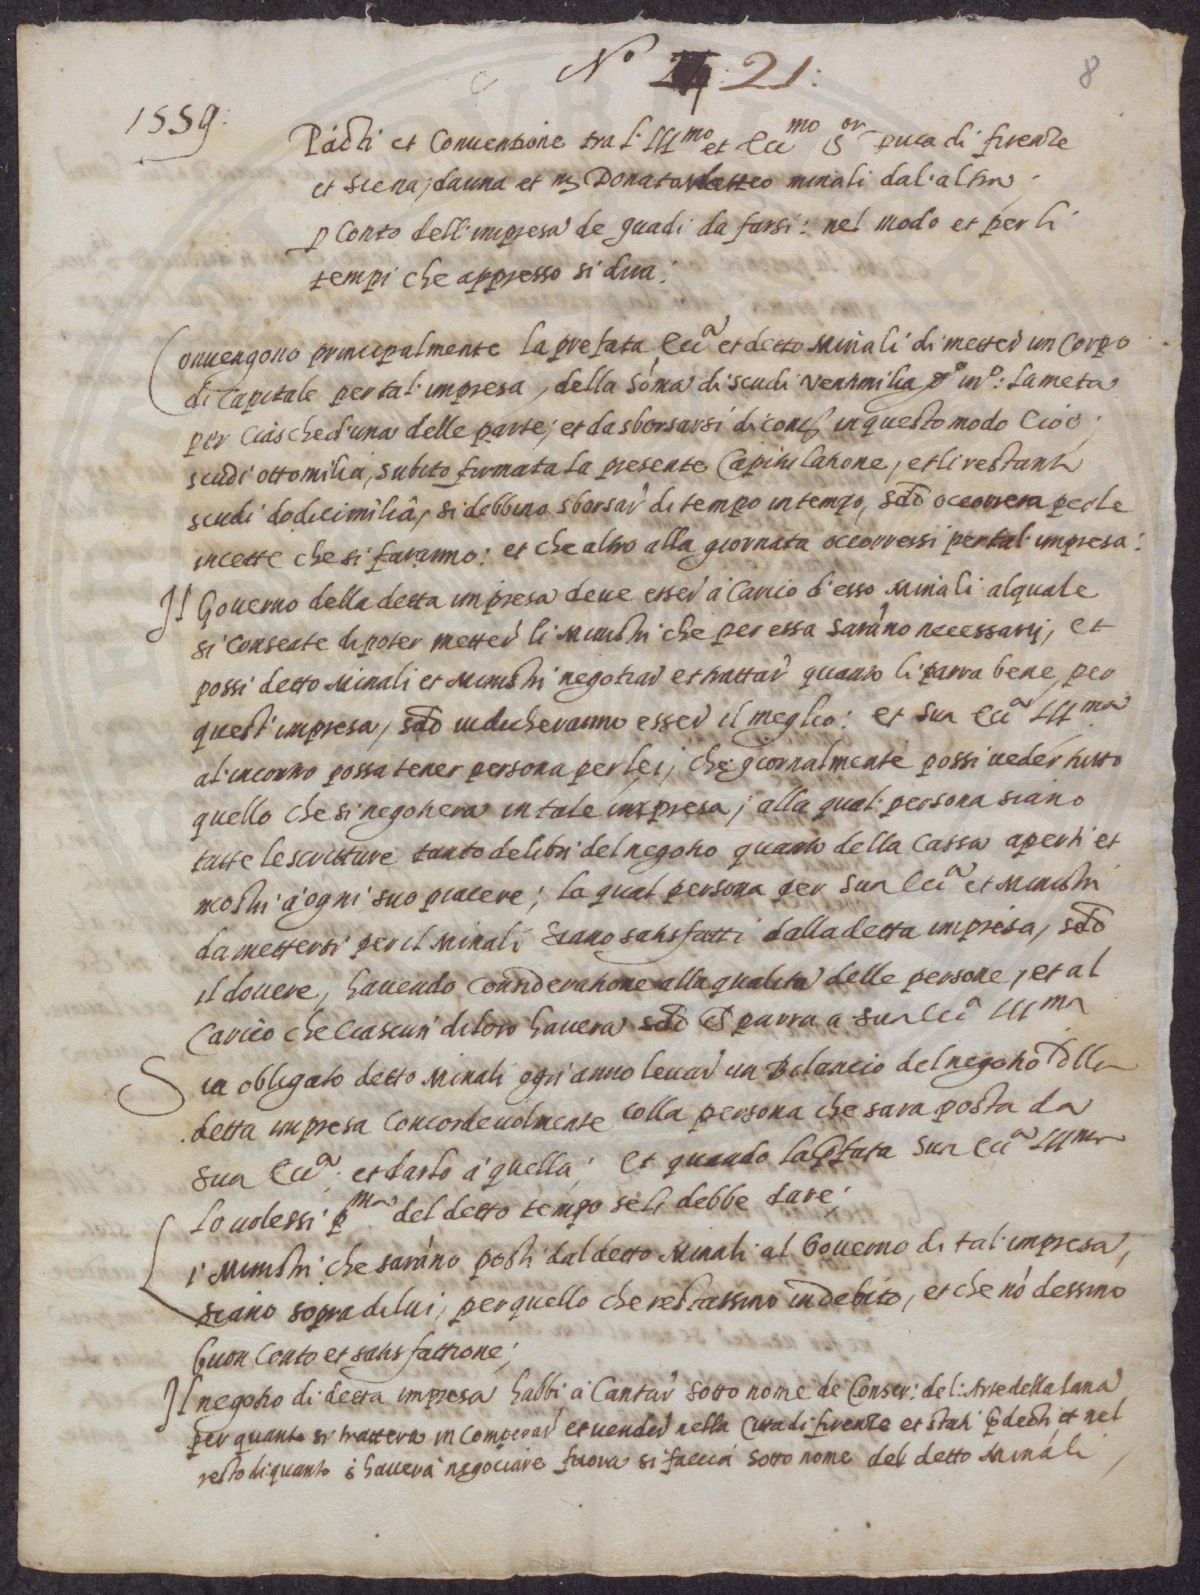 N.o 21:
8
1559:
Pacti et Conventione tra l'Ill.mo et Ecc.mo S.or Duca di firenze
et Siena, da una et m. Donato Matteo minali dal'altra
p conto dell'impresa de guadi da farsi: nel modo et per li
tempi che appresso si dira:
Convengono principalmente la prefata Ecc.a et detto Minali di metter un Corpo
di Capitale per tal'impresa, della sõma di scudi ventimilia d'o in o: la meta
per ciascheduna delle parte, et da sborsarsi di cont. in questo modo Cioe;
scudi ottomilia, subito firmata la presente Capitulatione, et li restanti
scudi dodicimilia, si debbino sborsar di tempo in tempo, sdõ occorrera per le
incette che si faranno: et che altro alla giornata occorressi per tal'impresa:
Il Governo della detta impresa deve esser à Carico d'esso Minali alquale
si consente di poter metter li Ministri che per essa sarãno necessarij, et
possi detto Minali et Ministri negotiar et trattar quanto li parra bene, per
quest'impresa, sdõ iudicheranno esser il meglio: et Sua Ecc.a Ill.ma
al'incontro possa tener persona per lei, che giornalmente possi veder tutto
quello che si negotiera in tale impresa; alla qual persona siano
tutte le scritture tanto de libri del negotio quanto della Cassa aperti et
mostri à ogni suo piacere; la qual persona per Sua Ecc.a et Ministri
da mettersi per il Minali siano satisfatti dalla detta impresa, sdõ
il dovere, havendo consideratione alla qualita delle persone, et al
Carico che ciascun di loro havera sdõ parra a Sua Ecc.a Ill.ma
Sia obligato detto Minali ogn'anno levar un Bilancio del negotio della
detta impresa concordevolmente colla persona che sara posta da
Sua Ecc.a: et darlo à quella; Et quando la p̃fata Sua Ecc.a Ill.ma
lo volessi p.ma del detto tempo se li debbe dare;
I Ministri che sarãno posti dal detto Minali al Governo di tal'impresa,
siano sopra di lui, per quello che restassino in debito, et che nõ dessino
buon conto et satisfattione;
Il negotio di detta impresa habbi à Cantar sotto nome de Conser: del'Arte della lana
per quanto si trattera in comperar et vender nella Citta di firenze et stati p̃decti et nel
resto di quanto s'havera negociare fuora si faccia sotto nome del detto Minali,